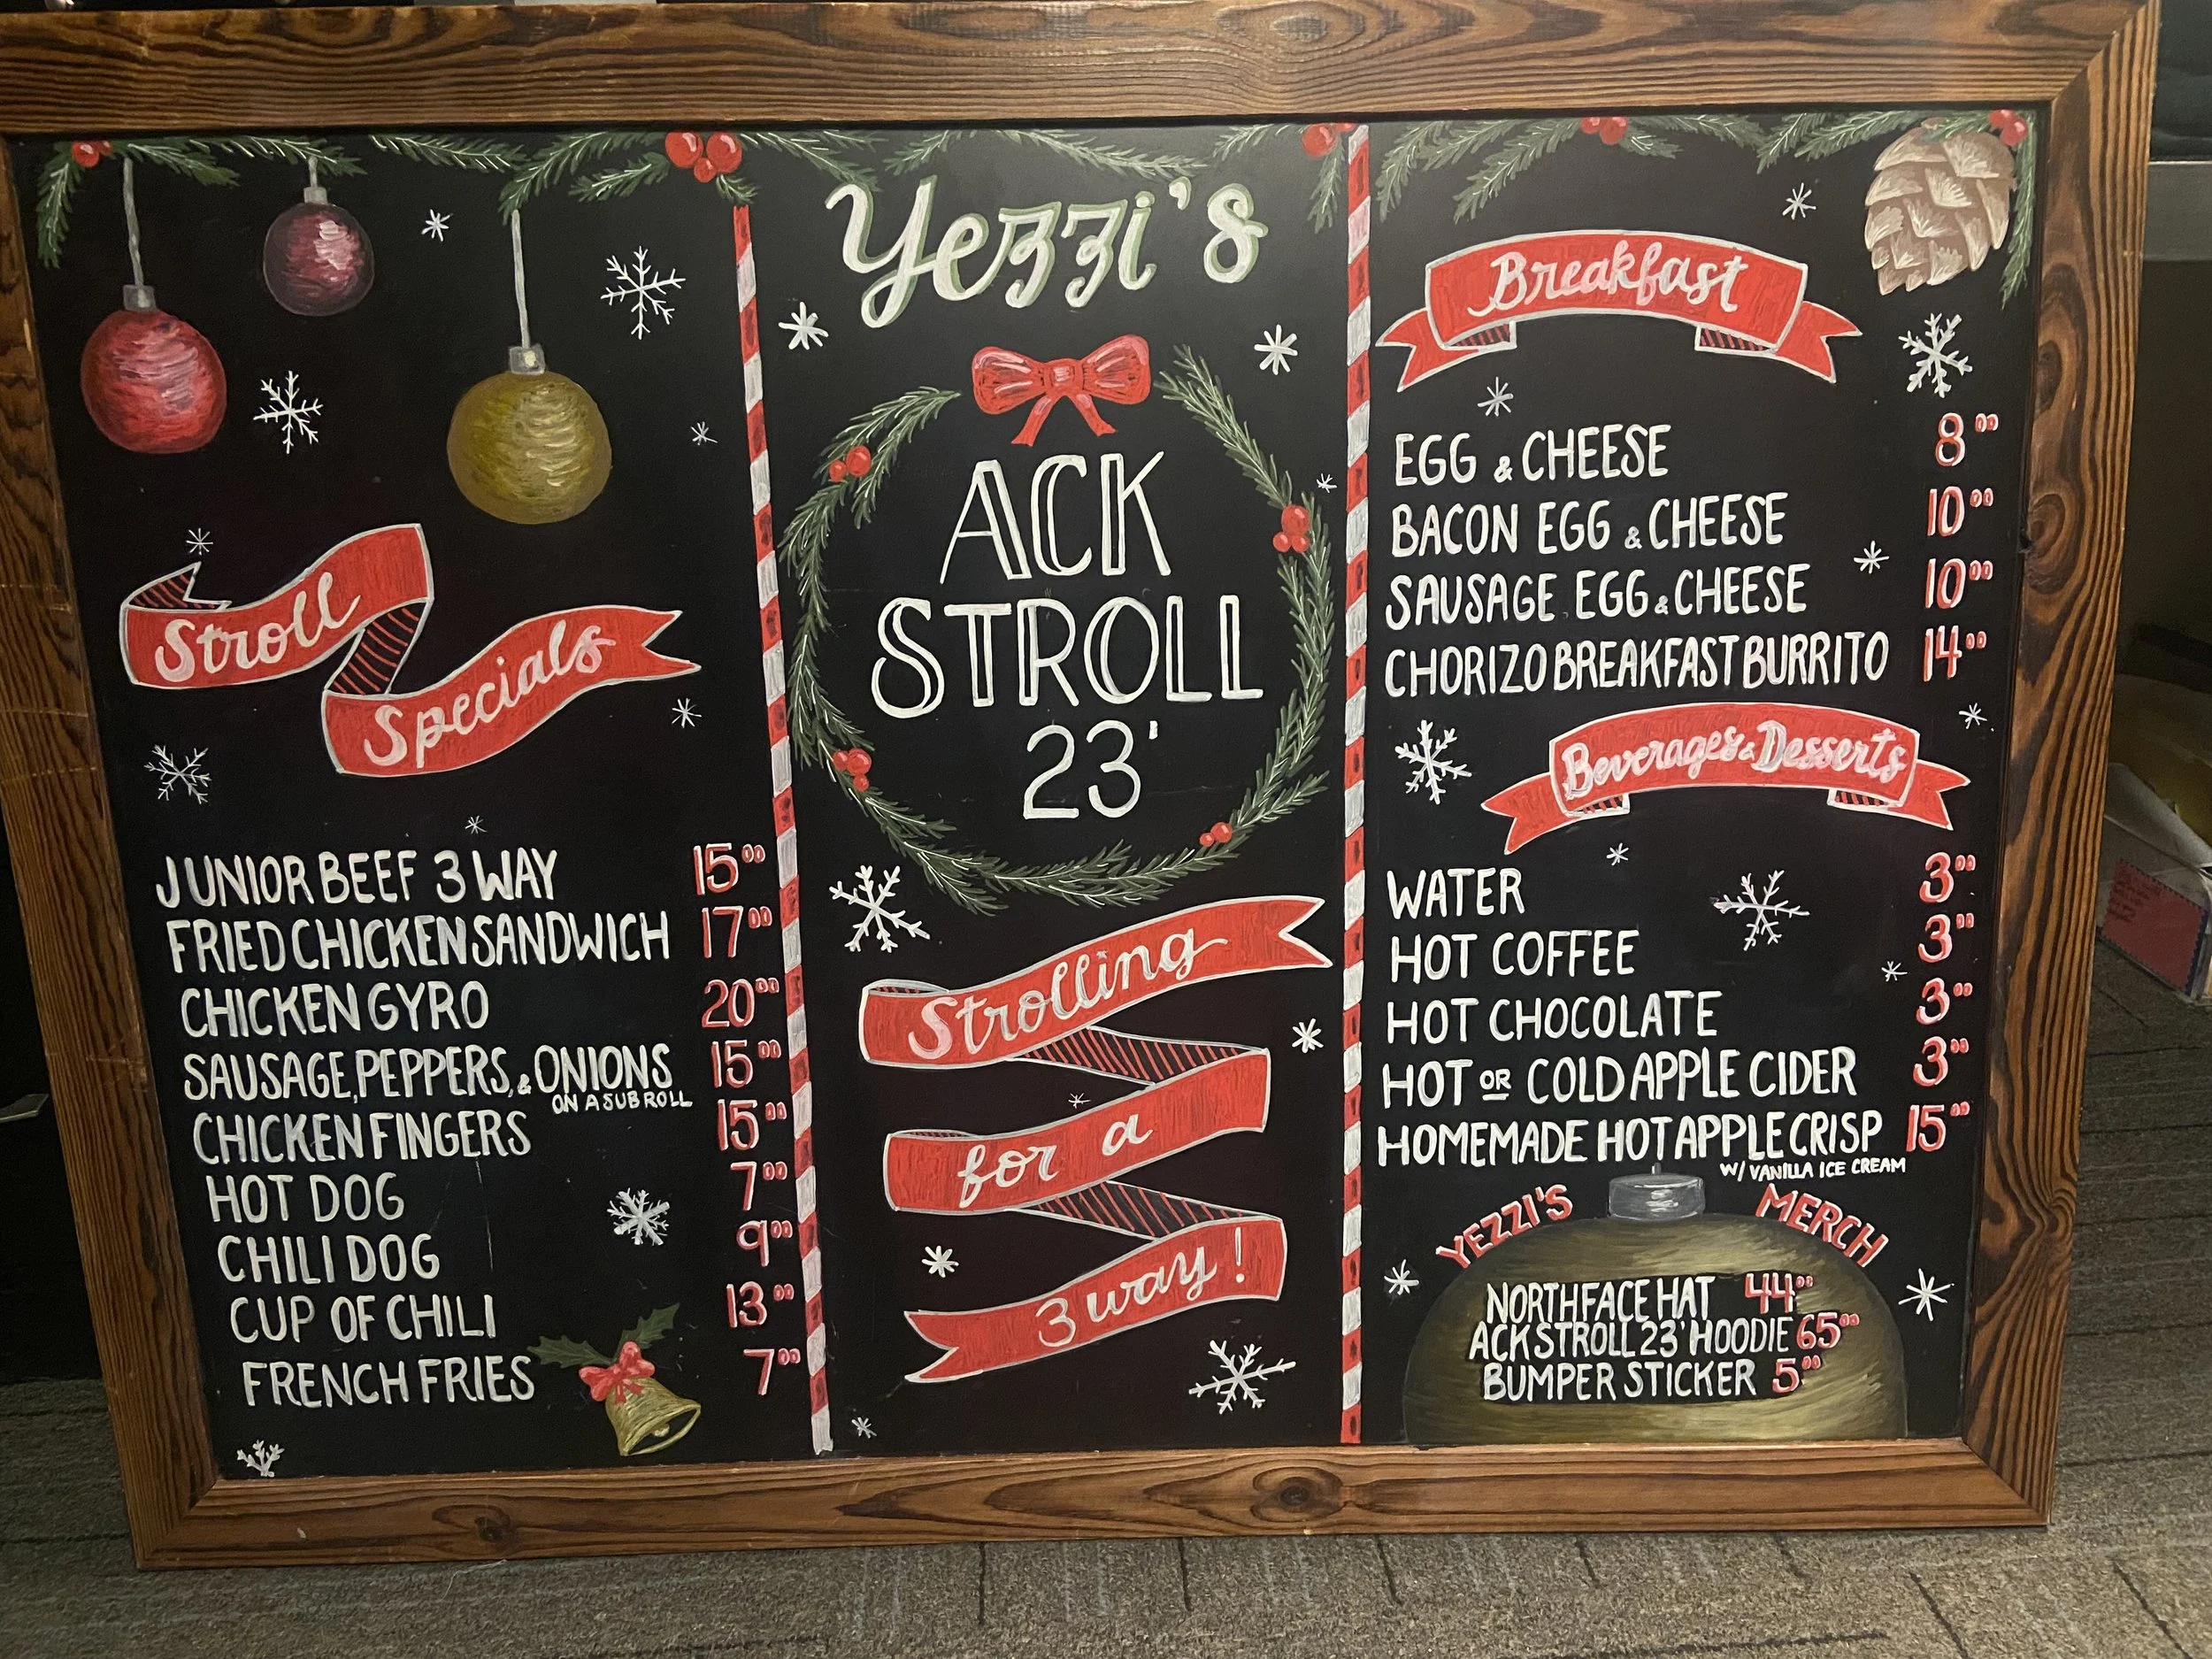 Stroll
Specials
JUNIOR BEEF 3 WAY 15⁰⁰
FRIED CHICKEN SANDWICH 17⁰⁰
CHICKEN GYRO 20⁰⁰
SAUSAGE, PEPPERS, & ONIONS 15⁰⁰
ON A SUB ROLL
CHICKEN FINGERS 15⁰⁰
HOT DOG 7⁰⁰
CHILI DOG 9⁰⁰
CUP OF CHILI 13⁰⁰
FRENCH FRIES 7⁰⁰
Yezzi's
ACK
STROLL
23'
Strolling
for a
3 way!
Breakfast
EGG & CHEESE 8⁰⁰
BACON EGG & CHEESE 10⁰⁰
SAUSAGE EGG & CHEESE 10⁰⁰
CHORIZO BREAKFAST BURRITO 14⁰⁰
Beverages & Desserts
WATER 3⁰⁰
HOT COFFEE 3⁰⁰
HOT CHOCOLATE 3⁰⁰
HOT OR COLD APPLE CIDER 3⁰⁰
HOMEMADE HOT APPLE CRISP 15⁰⁰
W/ VANILLA ICE CREAM
YEZZI'S MERCH
NORTHFACE HAT 44⁰⁰
ACK STROLL 23' HOODIE 65⁰⁰
BUMPER STICKER 5⁰⁰